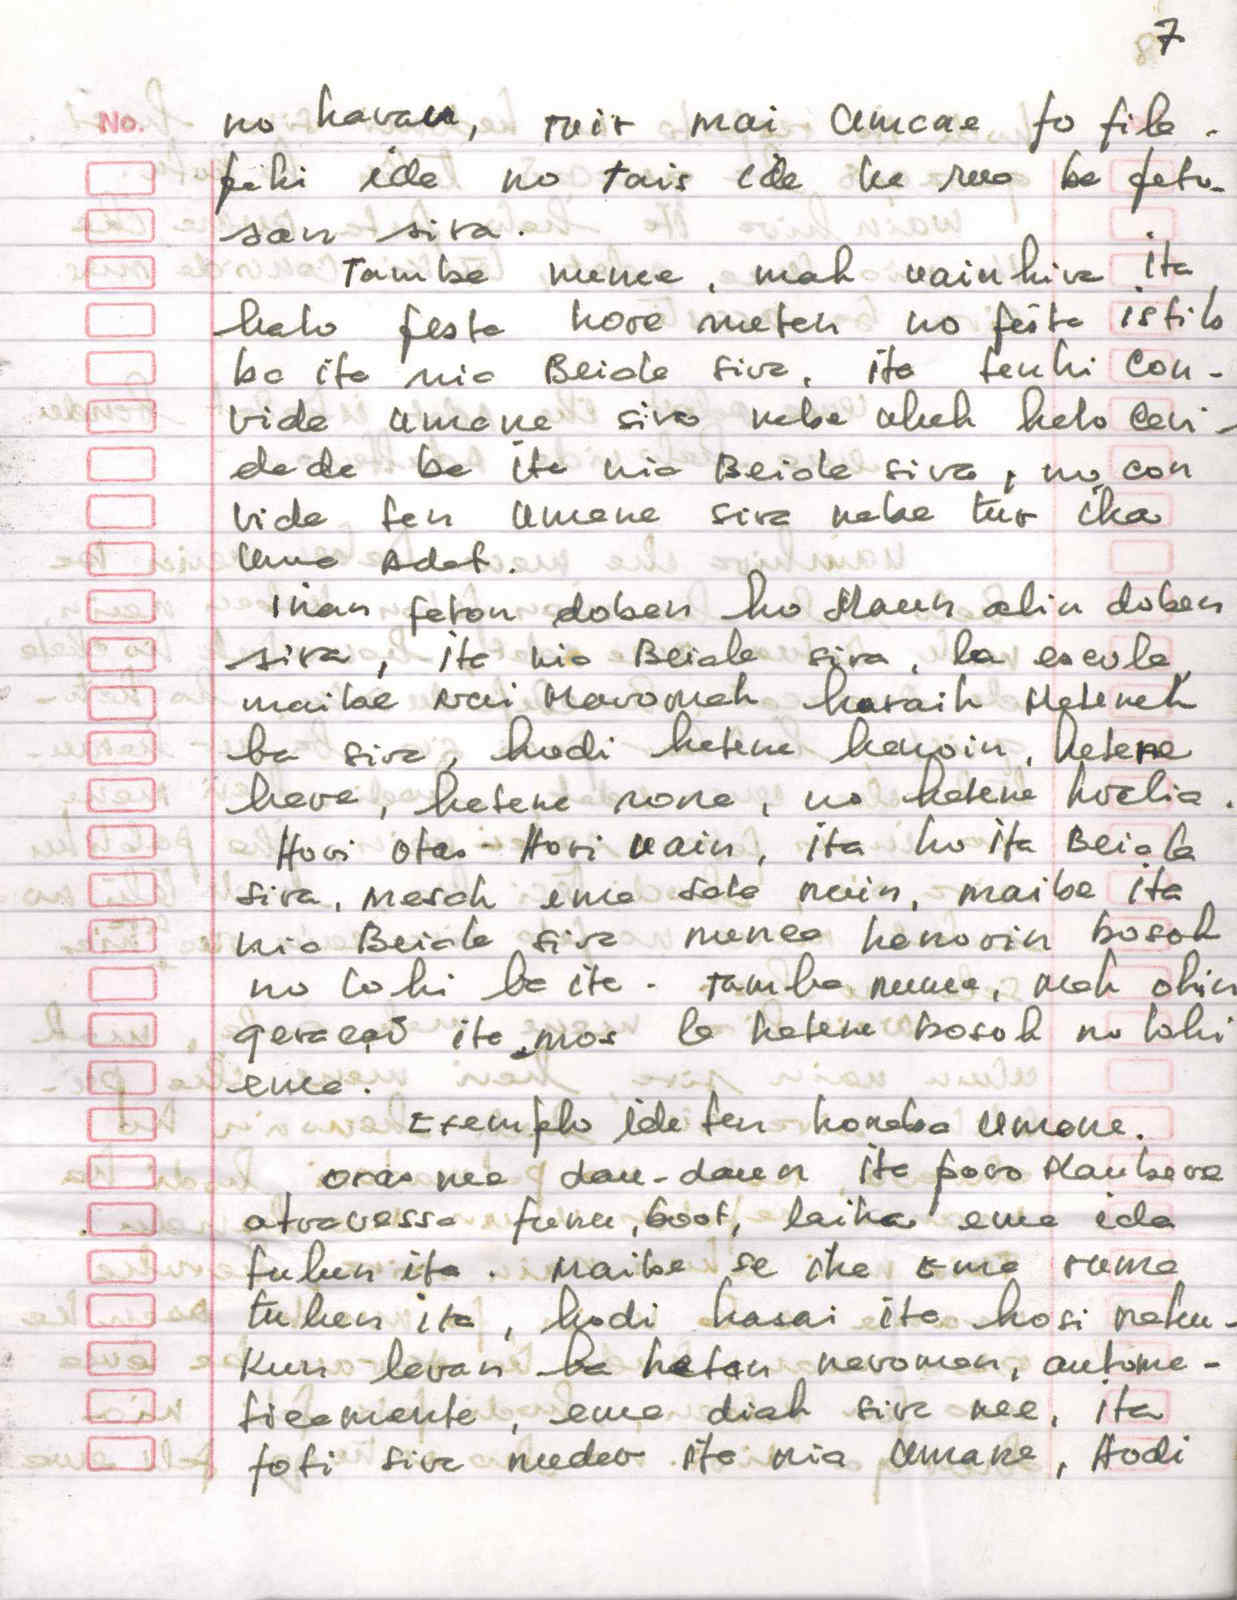 7
No.
no havan, tuir mai Umane fo fila
fihi ida no Tais ida ka rua ba fetu-
san sira.
Tamba nunee, mak uainhira ita
halo festa hare maten no festa istilo
ba ita nia Beiala sira, ita tenki con-
vida umane sira nebe atu halo cari-
dade ba ita nia Beiala sira, no con
vida ten Umane sira nebe tur iha
Uma Adat.
Inan feton doben ho Maun alin doben
sira, ita nia Beiala sira, la escola,
maibe Nai Maromak hasaih Matenek
ba sira, hodi hatene hanoin, hatene
haree, hatene rona, no hatene koalia.
Hori otas-Hori uain, ita ho ita Beiala
sira, mesak ema sala nain, maibe ita
nia Beiala sira nunca hanorin bosok
no lohi ba ita. Tamba nunee, mak ohin
geração ita mos la hatene bosok no lohi
ema.
Exemplo ida ten konaba Umane.
oras nee dau-daun ita povo Maubere
atravessa funu boot, laiha ema ida
tulun ita. Maibe se iha Ema ruma
tulun ita, hodi hasai ita hosi naku-
kun levan ba hetan naroman, automa-
ticamente, ema diak sira nee, ita
foti sira nudar ita nia Umane, Hodi